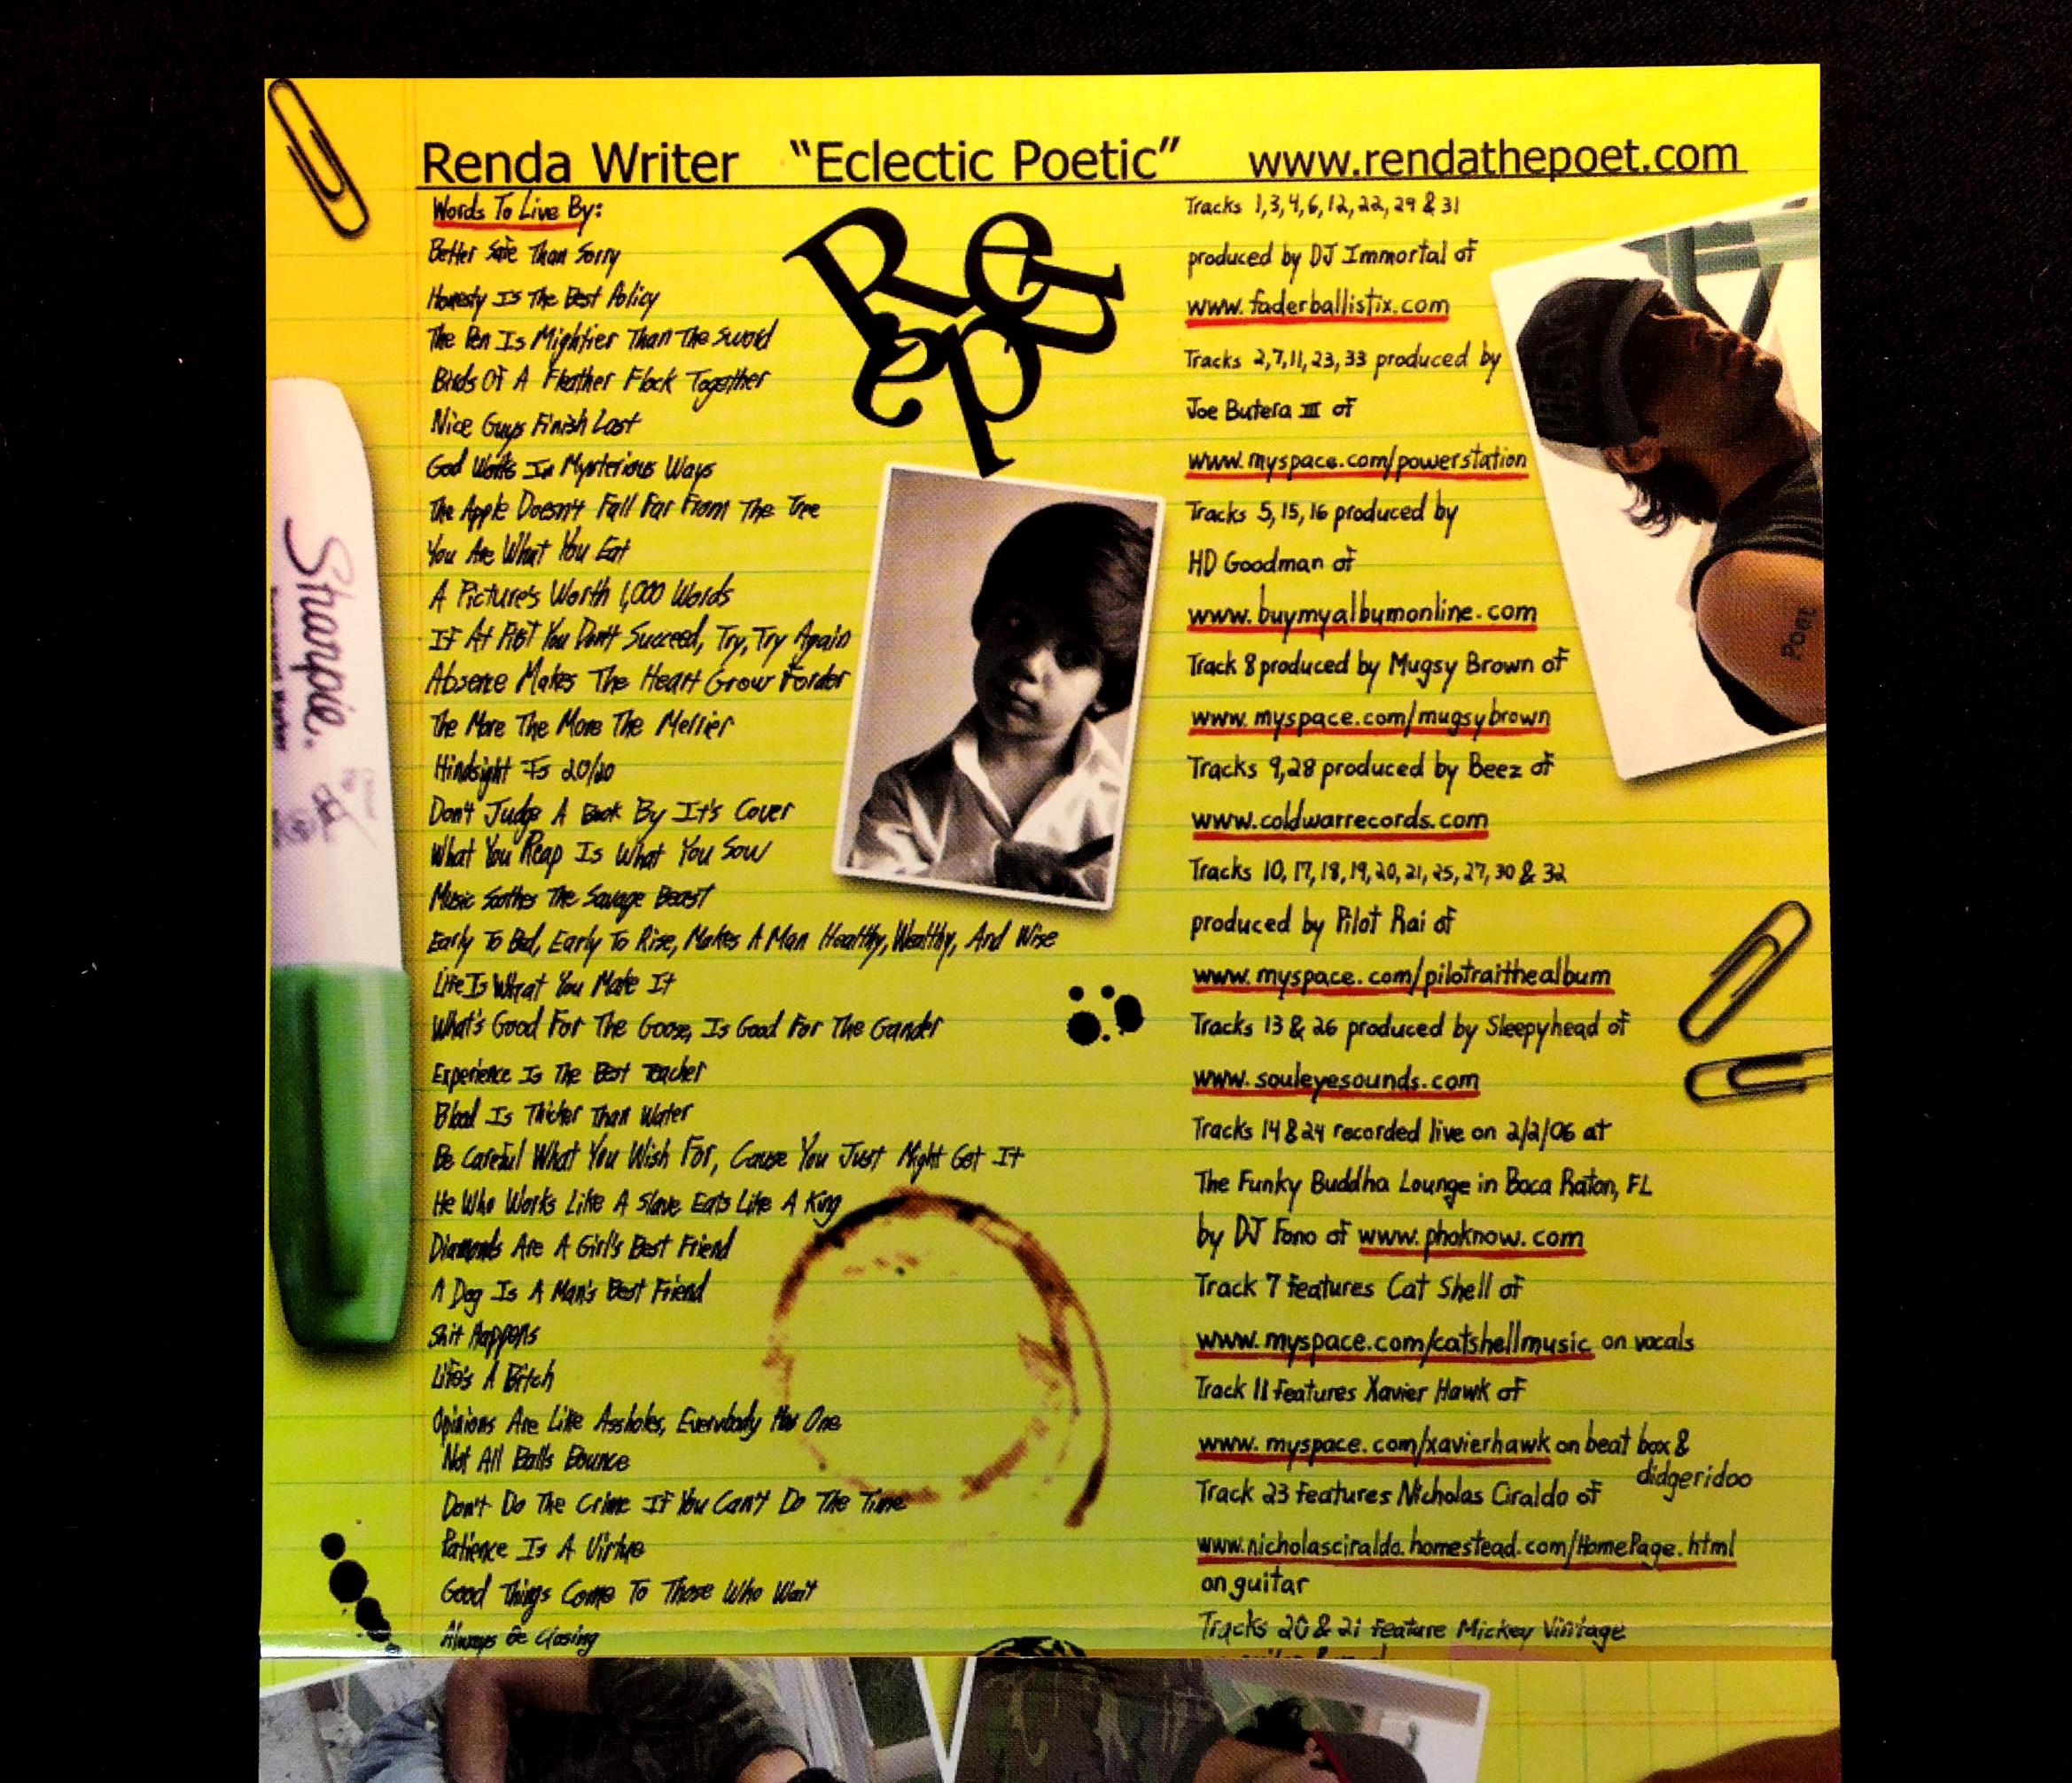 Renda Writer "Eclectic Poetic" www.rendathepoet.com
Words To Live By:
Better Safe Than Sorry
Honesty Is The Best Policy
The Pen Is Mightier Than The Sword
Birds Of A Feather Flock Together
Nice Guys Finish Last
God Works In Mysterious Ways
The Apple Doesn't Fall Far From The Tree
You Are What You Eat
A Picture's Worth 1,000 Words
If At First You Don't Succeed, Try, Try Again
Absence Makes The Heart Grow Fonder
The More The More The Merrier
Hindsight Is 20/20
Don't Judge A Book By It's Cover
What You Reap Is What You Sow
Music Soothes The Savage Beast
Early To Bed, Early To Rise, Makes A Man Healthy, Wealthy, And Wise
Life Is What You Make It
What's Good For The Goose, Is Good For The Gander
Experience Is The Best Teacher
Blood Is Thicker Than Water
Be Careful What You Wish For, Cause You Just Might Get It
He Who Works Like A Slave Eats Like A King
Diamonds Are A Girl's Best Friend
A Dog Is A Man's Best Friend
Shit Happens
Life's A Bitch
Opinions Are Like Assholes, Everybody Has One
Not All Balls Bounce
Don't Do The Crime If You Can't Do The Time
Patience Is A Virtue
Good Things Come To Those Who Wait
Always Be Closing
Tracks 1,3,4,6,12,22,29 & 31
produced by DJ Immortal of
www.faderballistix.com
Tracks 2,7,11,23,33 produced by
Joe Butera III of
www.myspace.com/powerstation
Tracks 5,15,16 produced by
HD Goodman of
www.buymyalbumonline.com
Track 8 produced by Mugsy Brown of
www.myspace.com/mugsybrown
Tracks 9,28 produced by Beez of
www.coldwarrecords.com
Tracks 10,17,18,19,20,21,25,27,30 & 32
produced by Pilot Rai of
www.myspace.com/pilotraithealbum
Tracks 13 & 26 produced by Sleepyhead of
www.souleyesounds.com
Tracks 14 & 24 recorded live on 2/2/06 at
The Funky Buddha Lounge in Boca Raton, FL
by DJ Fono of www.phoknow.com
Track 7 features Cat Shell of
www.myspace.com/catshellmusic on vocals
Track 11 features Xavier Hawk of
www.myspace.com/xavierhawk on beat box &
didgeridoo
Track 23 features Nicholas Ciraldo of
www.nicholasciraldo.homestead.com/HomePage.html
on guitar
Tracks 20 & 21 feature Mickey Vintage
Sharpie.
Poet